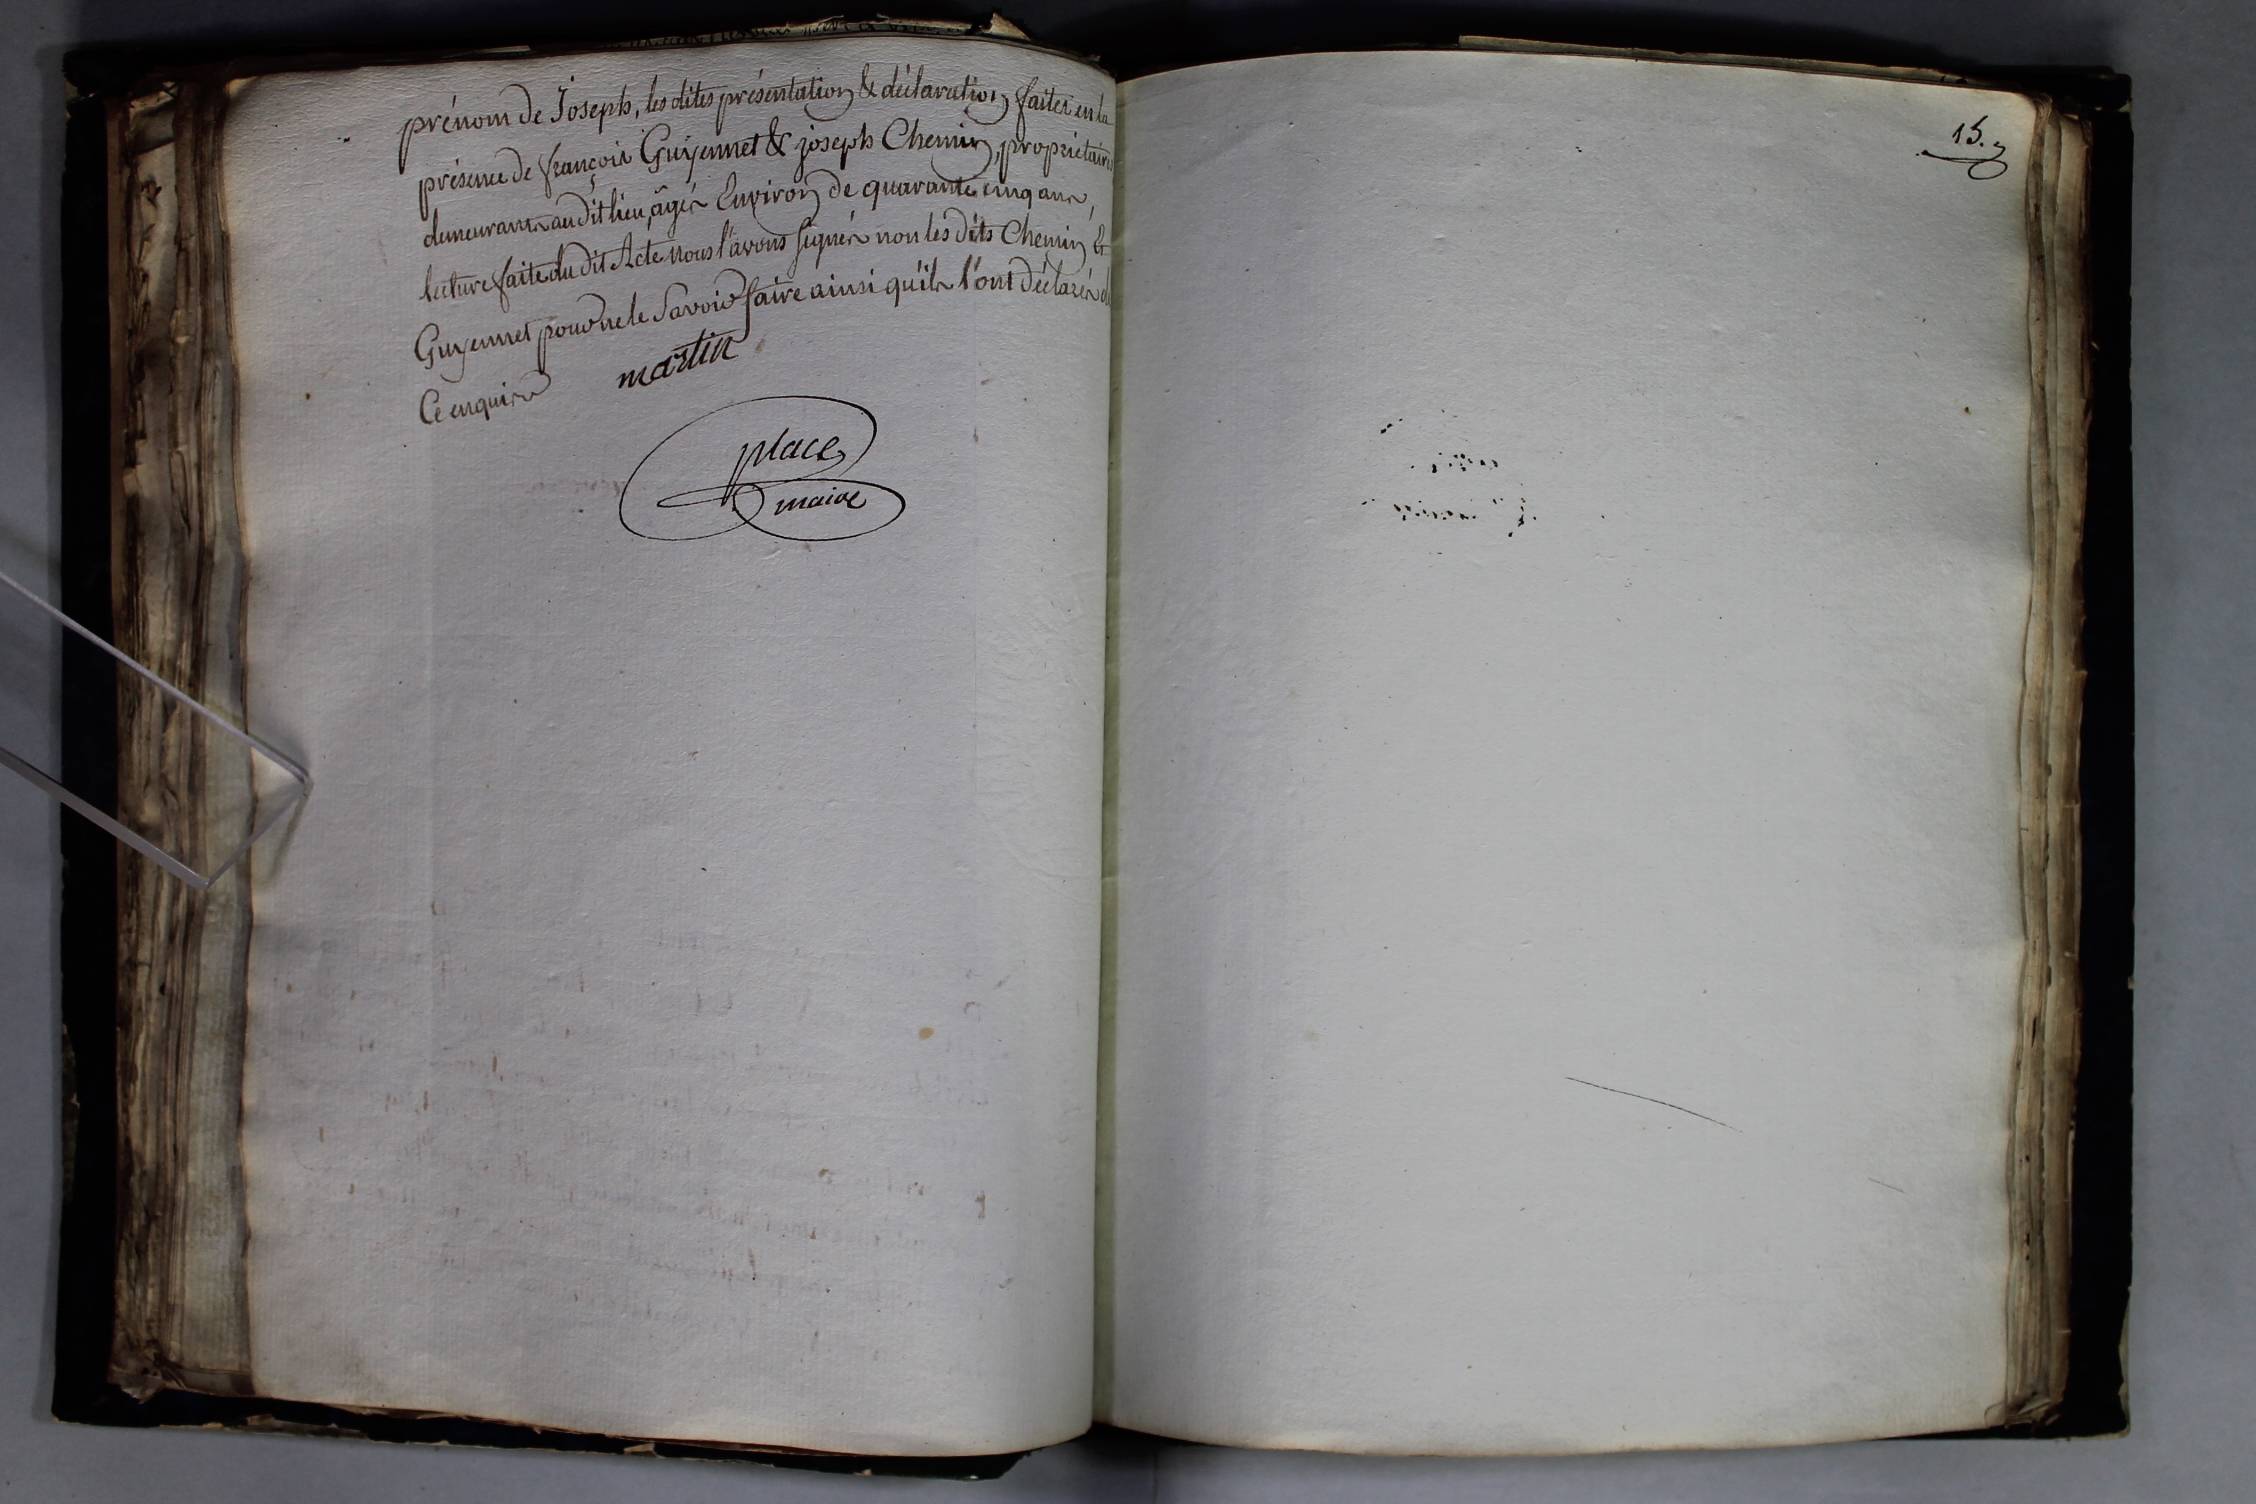 prénom de Joseph, les dites présentation & déclaration faites en la
présence de françois Guyennet & joseph Chemin, propriétaires
demeurants au dit lieu, âgés Environ de quarante cinq ans,
lecture faite du dit Acte nous l'avons signés non les dits Chemin &
Guyennet pour ne le Savoir faire ainsi qu'ils l'ont déclarés de
Ce enquis
martin
place
maire
15.